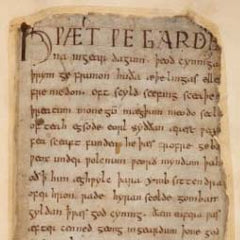 HǷÆT ǷE GARDE
na ingear dagum . þeod cyninga
þrym ge frunon huða æþelingas elle
fre medon. oft scyld scefing sceaþe
þreatum monegū mægþum meodo setl
of teah egsode eorl syððan ærest ƿear
fea sceaft funden he þæs frofre geba
ƿeox under ƿolcnum ƿeorð myndum þah
oð þ him æghƿylc þara ymb sittendra
ofer hron rade hyran scolde gomban
gyldan þæt ƿæs god cyning. ðæm eafera ƿæs
æfter cenned geong ingeardum þone god